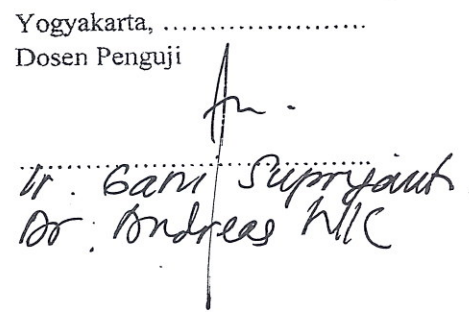 Yogyakarta, .....................
Dosen Penguji
.....................................................
Ir. Gani Supriyanto
Dr. Andreas WK